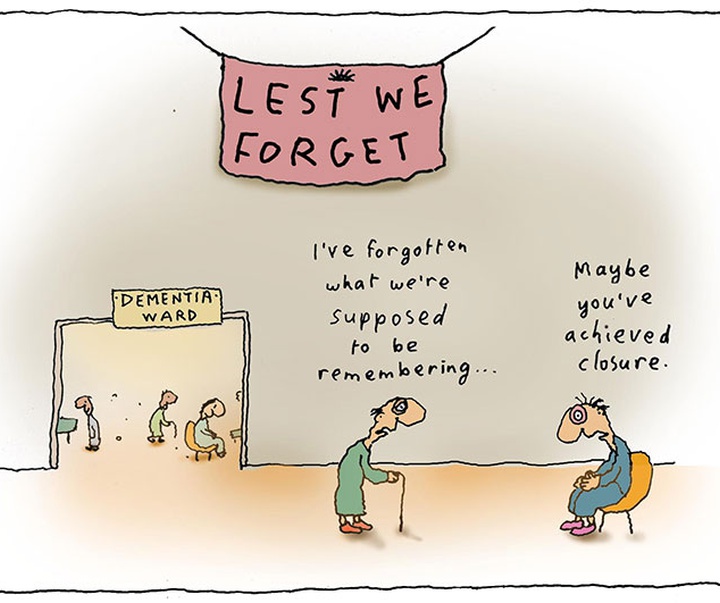 LEST WE
FORGET
DEMENTIA
WARD
I've forgotten
what we're
supposed
to be
remembering...
Maybe
you've
achieved
closure.